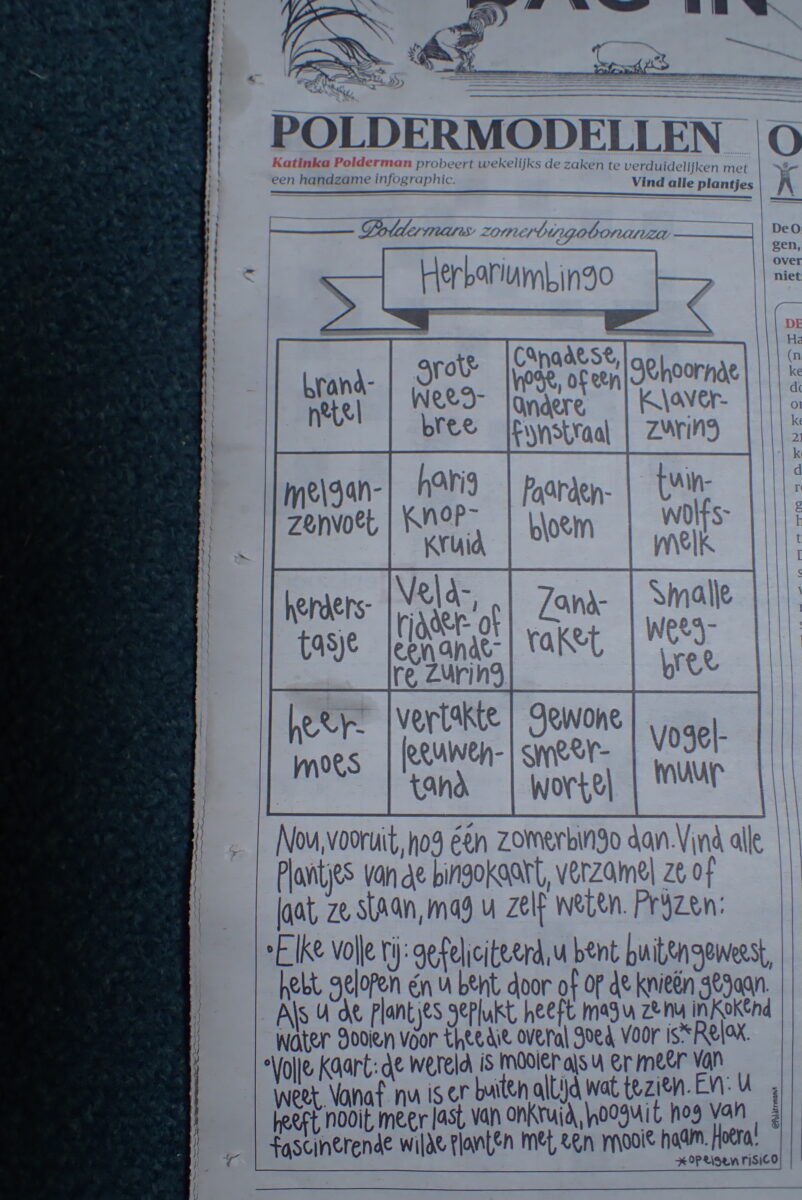 DAG IN
POLDERMODELLEN
Katinka Polderman probeert wekelijks de zaken te verduidelijken met
een handzame infographic. Vind alle plantjes
Poldermans zomerbingobonanza
Herbariumbingo
brand-
netel
grote
weeg-
bree
Canadese,
hoge, of een
andere
fijnstraal
gehoornde
klaver-
zuring
melgan-
zenvoet
harig
knop-
kruid
Paarden-
bloem
tuin-
wolfs-
melk
herders-
tasje
Veld-,
ridder- of
een ande-
re zuring
Zand-
raket
Smalle
weeg-
bree
heer-
moes
vertakte
leeuwen-
tand
gewone
smeer-
wortel
vogel-
muur
Nou, vooruit, nog één zomerbingo dan. Vind alle
plantjes van de bingokaart, verzamel ze of
laat ze staan, mag u zelf weten. Prijzen:
• Elke volle rij: gefeliciteerd, u bent buiten geweest,
hebt gelopen én u bent door of op de knieën gegaan.
Als u de plantjes geplukt heeft mag u ze nu in kokend
water gooien voor thee die overal goed voor is.* Relax.
• Volle kaart: de wereld is mooier als u er meer van
weet. Vanaf nu is er buiten altijd wat te zien. En: u
heeft nooit meer last van onkruid, hooguit nog van
fascinerende wilde planten met een mooie naam. Hoera!
*op eigen risico
O
De O
gen,
over
niet
DE
Ha
(n
ke